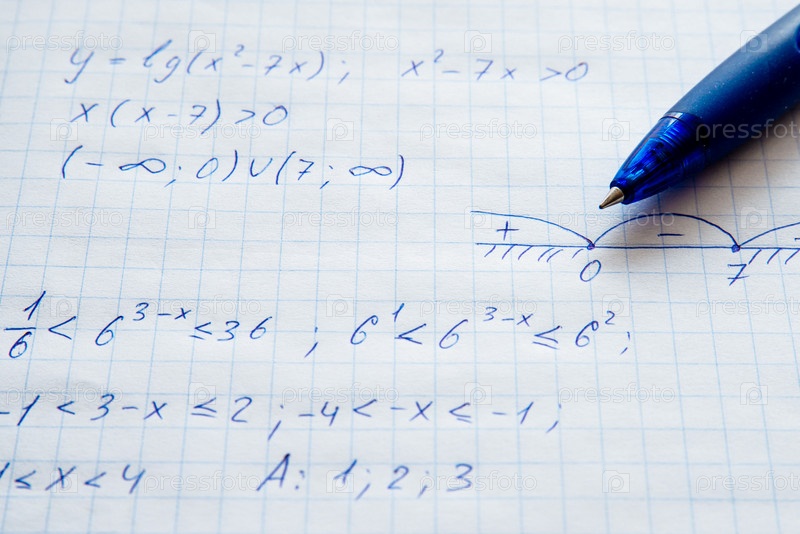 y = lg(x²-7x); x²-7x >0
x(x-7)>0
(-∞; 0)∪(7; ∞)
+ -
0 7
1/6 < 6³⁻ˣ ≤ 36 ; 6¹ < 6³⁻ˣ ≤ 6²;
-1 < 3-x ≤ 2 ; -4 < -x ≤ -1 ;
1 ≤ x < 4 A: 1; 2; 3
pressfoto